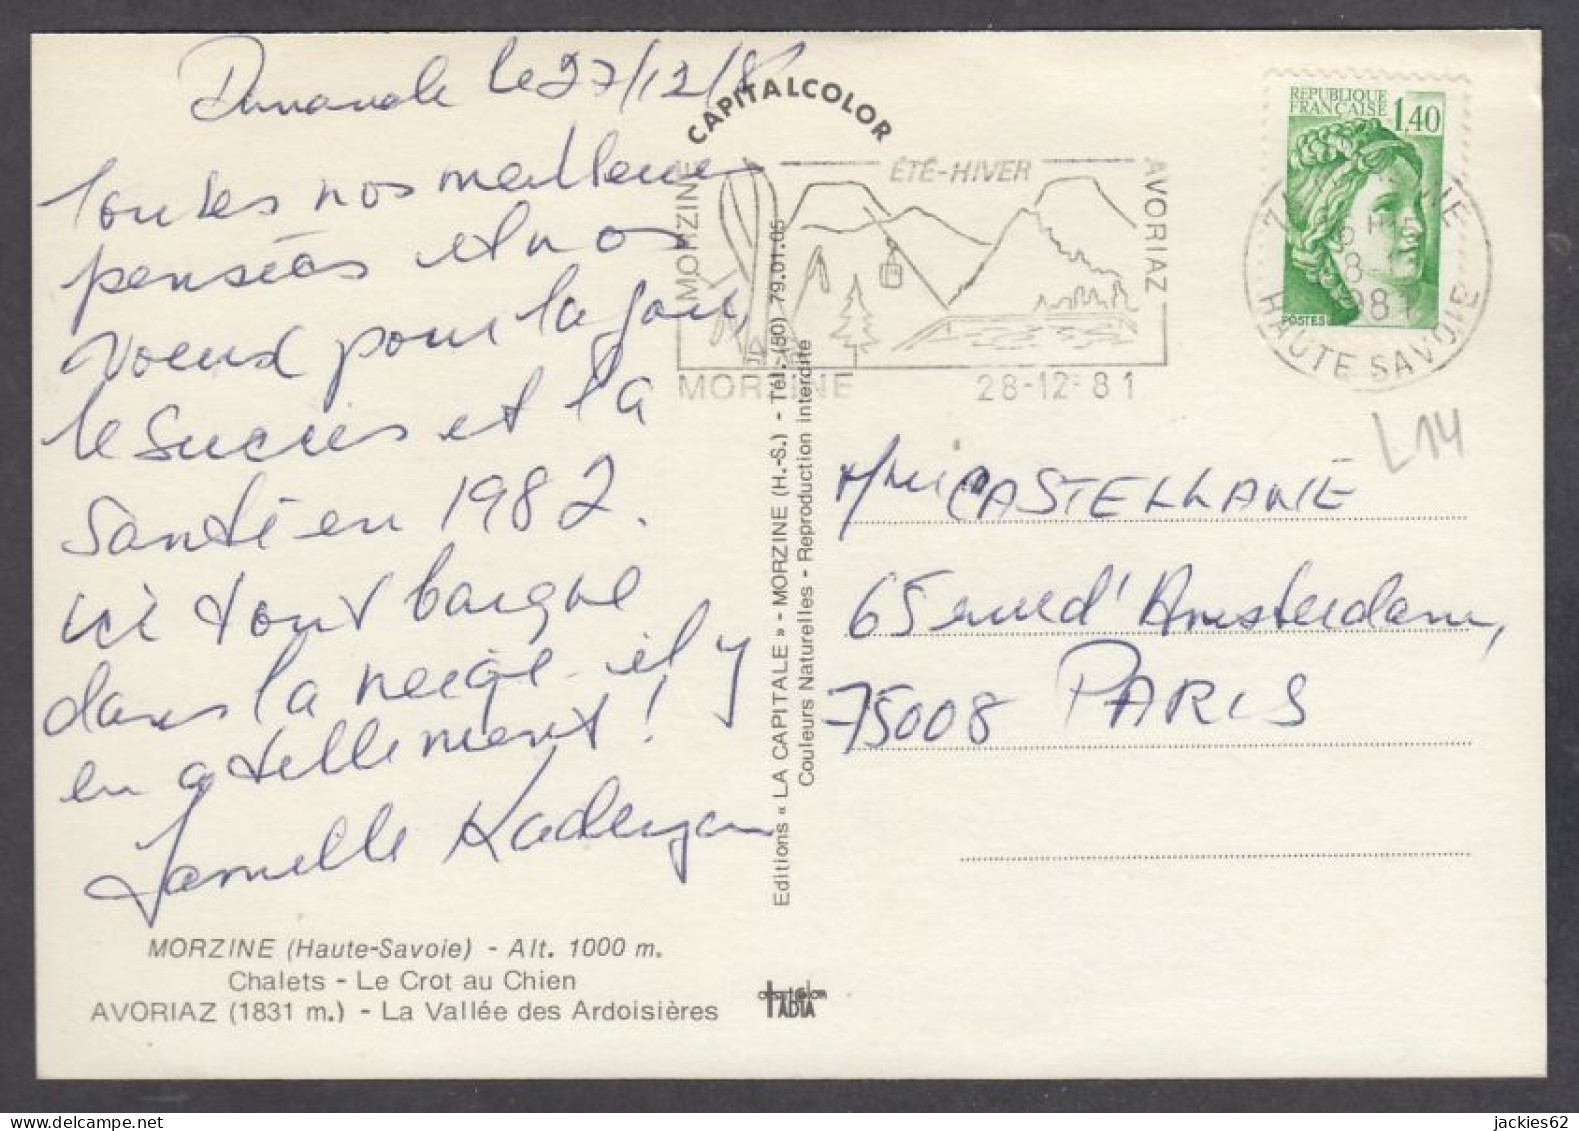 Dimanche le 27/12/8
CAPITALCOLOR
Toutes nos meilleures
pensées et nos
voeux pour la joie,
le succès et la
santé en 1982.
ici tout baigne
dans la neige - il y
en a tellement !
MORZINE (Haute-Savoie) - Alt. 1000 m.
Chalets - Le Crot au Chien
AVORIAZ (1831 m.) - La Vallée des Ardoisières
MORZINE
ÉTÉ-HIVER
AVORIAZ
MORZINE
28-12-81
Editions « LA CAPITALE » - MORZINE (H.-S.) - Tél. (50) 79.01.05
Couleurs Naturelles - Reproduction interdite
REPUBLIQUE
FRANÇAISE
1,40
POSTES
HAUTE SAVOIE
L14
CASTELLANE
65 rue d'Amsterdam,
75008 PARIS
TADIA
jackies62